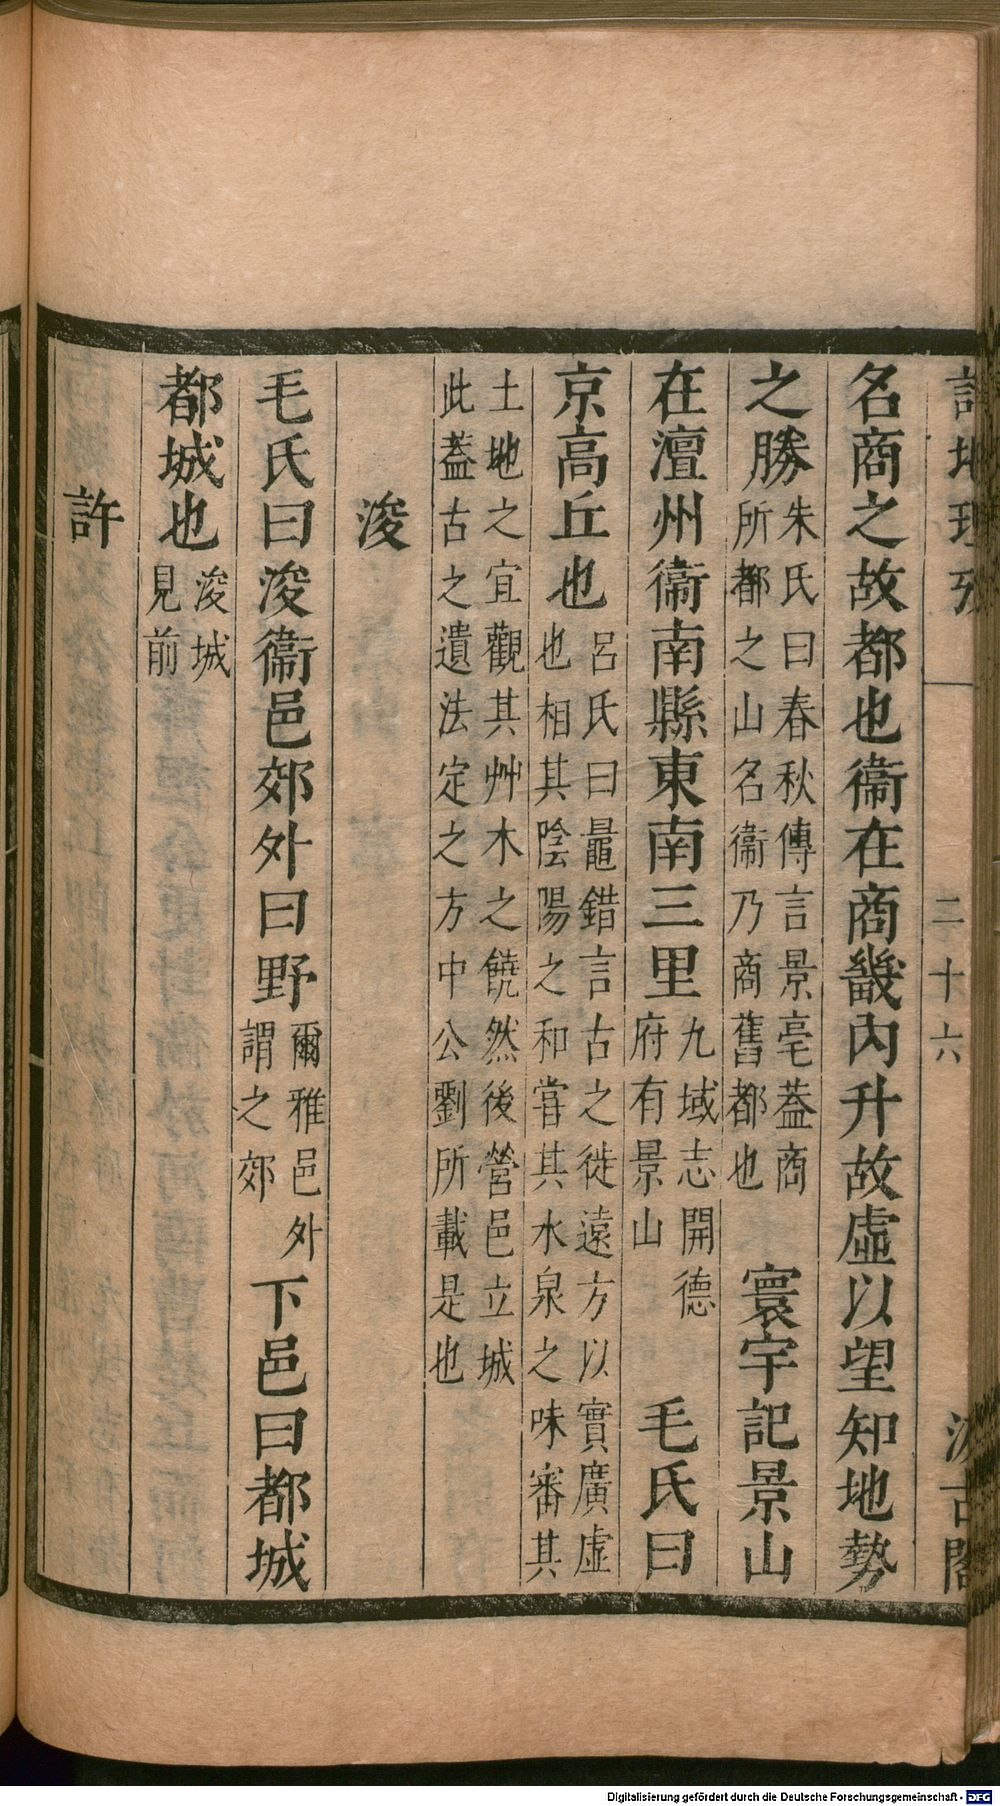 詩地理攷 二十六 汲古閣
名商之故都也衞在商畿內升故虛以望知地勢
之勝朱氏曰春秋傳言景亳蓋商
所都之山名衞乃商舊都也寰宇記景山
在澶州衞南縣東南三里九域志開德
府有景山毛氏曰
京高丘也呂氏曰鼂錯言古之徙遠方以實廣虛
也相其陰陽之和嘗其水泉之味審其
土地之宜觀其艸木之饒然後營邑立城
此蓋古之遺法定之方中公劉所載是也
浚
毛氏曰浚衞邑郊外曰野爾雅邑外
謂之郊下邑曰都城
都城也浚城
見前
許
Digitalisierung gefördert durch die Deutsche Forschungsgemeinschaft - DFG